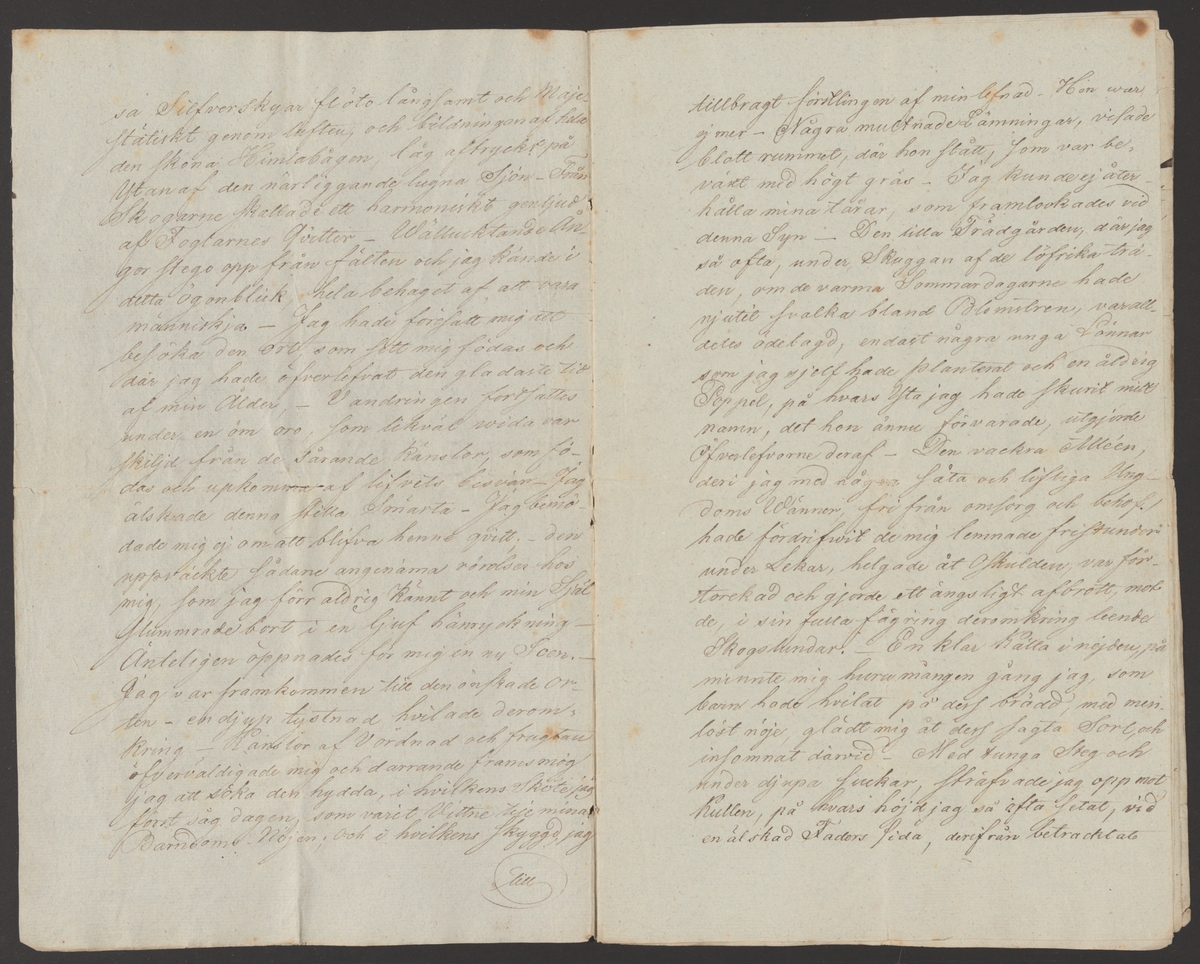 sa Silfverskyar flöto långsamt och Maje-
stätiskt genom luften, och bildningen af hela
den sköna Himlabågen, låg aftryckt på
Ytan af den närliggande lugna Sjön – Från
Skogarne skallade ett harmoniskt genljud
af Foglarnes Qvitter – Wällucktande Ån-
gor stego opp från fälten och jag kände i
detta ögonblick, hela behaget af att vara
människja – Jag hade försatt mig att
besöka den Ort, som sett mig födas och
där jag hade öfverlefvat den gladaste tid
af min Ålder, – Vandringen fortsattes
under en öm oro, som likväl wida var
skiljd från de sårande känslor, som fö-
das och upkomma af lifvets besvär – Jag
älskade denna stilla Smärta – Jag bemö-
dade mig ej om att blifva henne qvitt, – den
uppväckte sådane angenäma rörelser hos
mig, som jag förr aldrig kännt och min Själ
slummrade bort i en ljuf hänryckning –
Änteligen öppnades för mig en ny Scen. –
Jag var framkommen till den önskade Or-
ten – en djup tystnad hvilade derom-
kring – Känslor af Vördnad och fruktan
öfverväldigade mig och darrande framsmög
jag att söka den hydda, i hvilkens sköte jag
först såg dagen, som varit Vittne till mina
Barndoms Nöjen, och i hvilkens skyggd, jag
till
tillbragt förstlingen af min lefnad – Hon war
ej mer – Några multnade Lämningar, visade
blott rummet, där hon stått, som var be-
växt med högt gräs – Jag kunde ej åter-
hålla mina tårar, som framlockades vid
denna Syn – Den lilla Trädgården, där jag
så ofta, under Skuggan af de löfrika trä-
den, om de varma Sommardagarne hade
njutit svalka bland Blomstren, var all-
deles ödelagd, endast några unga Lönnar
som jag sjelf hade planterat och en åldrig
Poppel, på hvars Yta jag hade skurit mitt
namn, det hon ännu förvarade, utgjorde
Öfverlefvorne deraf – Den vackra Alléen,
deri jag med några såta och lifliga Ung-
doms Wänner, fri från omsorg och behof,
hade fördrifwit de mig lemnade fristunder
under Lekar, helgade åt Oskulden, var för-
torckad och gjorde ett ängsligt afbrott, mot
de, i sin fulla fägring deromkring leende
Skogslundar. – En klar Källa i nöjden, på
minnte mig huru mången gång jag, som
barn hade hvilat på dess brädd, med men-
löst nöje, glädt mig åt dess sagta Sorl, och
insomnat därvid – Med tunga Steg och
under djupa suckar, sträfvade jag opp mot
Kullen, på hvars höjd jag så ofta setat, vid
en älskad Faders sida, derifrån betracktat